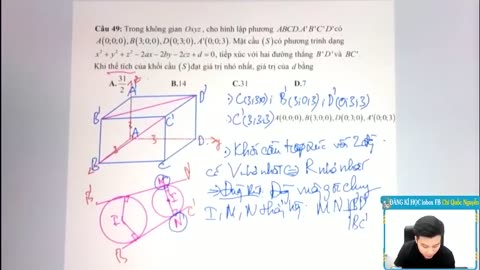 Câu 49: Trong không gian Oxyz, cho hình lập phương ABCD.A'B'C'D' có
A(0;0;0), B(3;0;0), D(0;3;0), A'(0;0;3). Mặt cầu (S) có phương trình dạng
x² + y² + z² − 2ax − 2by − 2cz + d = 0, tiếp xúc với hai đường thẳng B'D' và BC'.
Khi thể tích của khối cầu (S) đạt giá trị nhỏ nhất, giá trị của d bằng
A. 31/2 B.14 C.31 D.7
A'
D'
B'
C'
3
A
3
D
B
C
⇒ C(3;3;0), B'(3;0;3), D'(0;3;3)
⇒ C'(3;3;3) A(0;0;0), B(3;0;0), D(0;3;0), A'(0;0;3)
⇒ Khối cầu tiếp xúc với 2
có V nhỏ nhất ⇔ R nhỏ nhất
vuông góc chung
I, M, N thẳng MN
B'
M
N
D'
I
I
B
N
C'
ĐĂNG KÍ HỌC inbox FB Chí Quốc Nguyễn